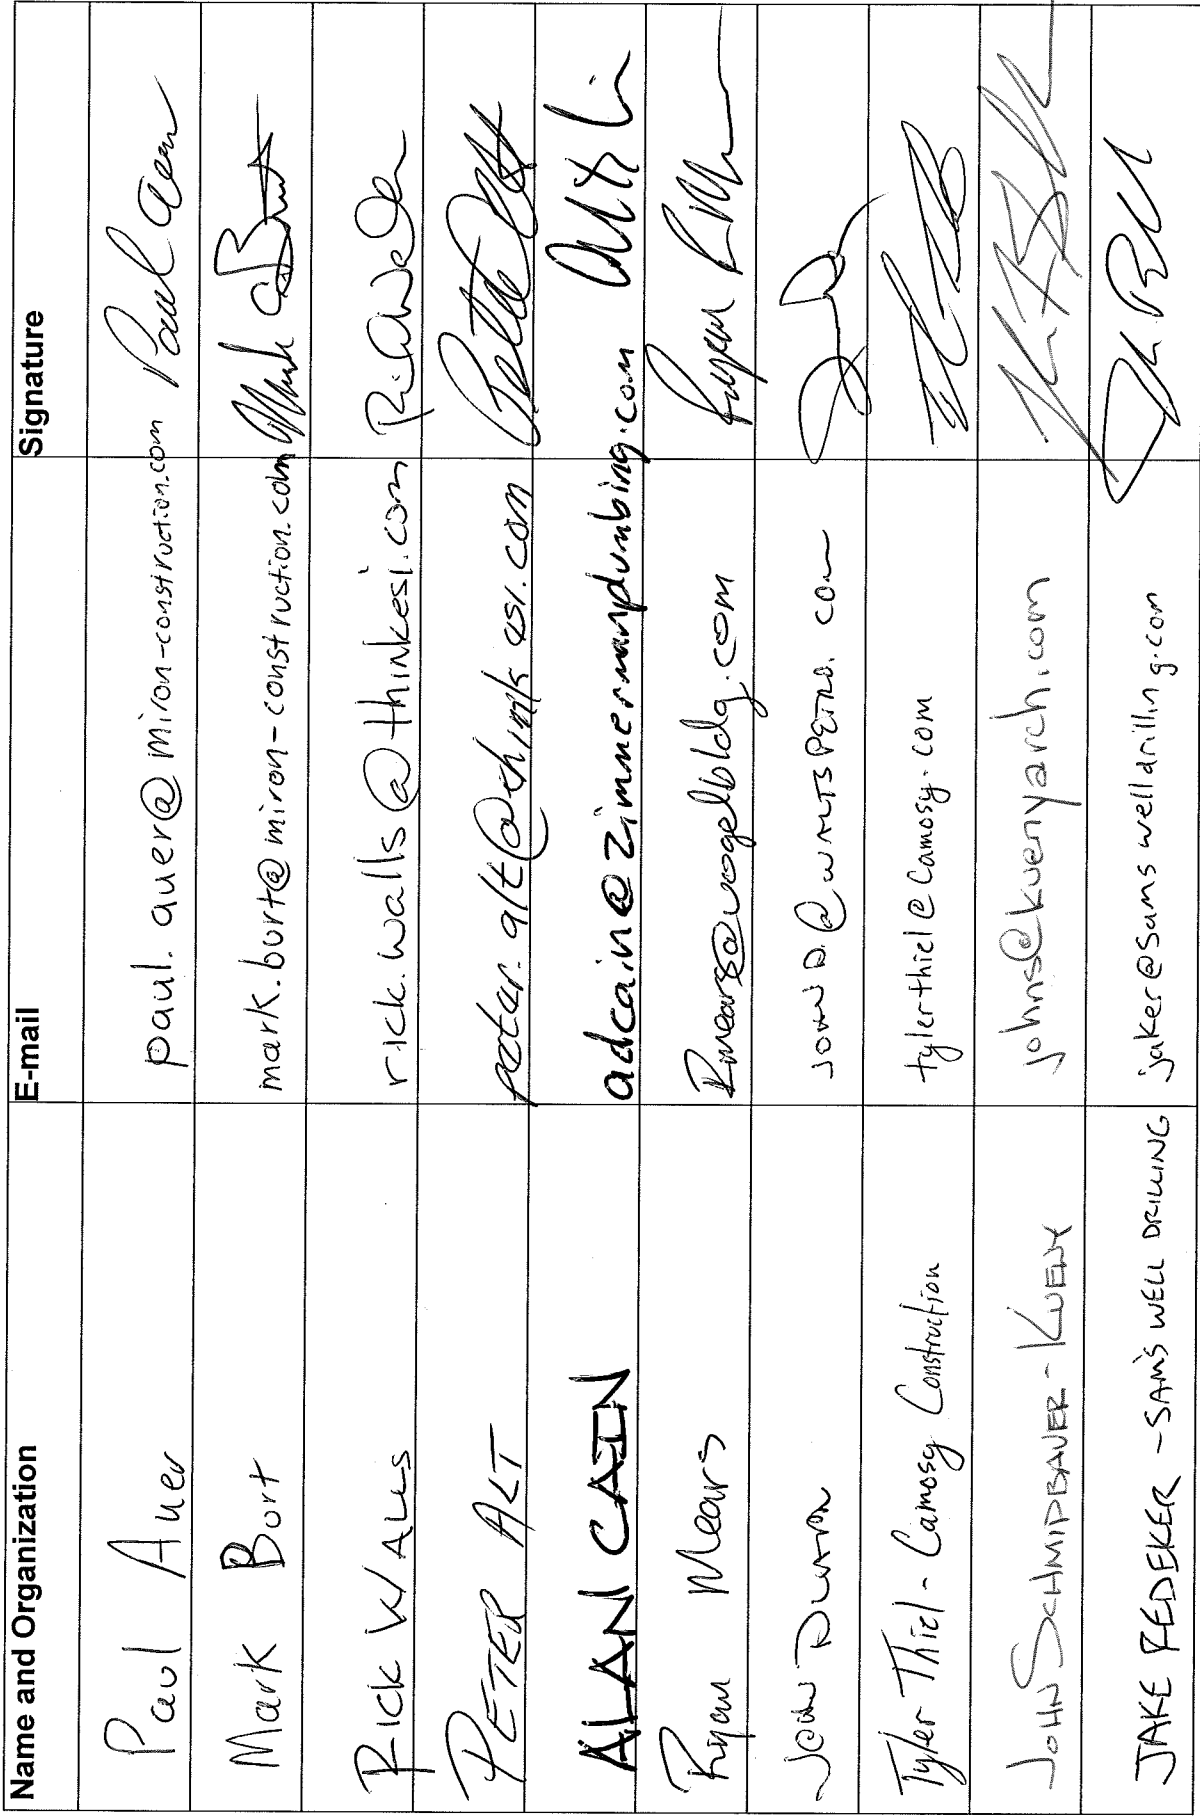 Name and Organization E-mail Signature
Paul Auer paul.auer@miron-construction.com Paul Auer
Mark Bort mark.bort@miron-construction.com
Rick Walls rick.walls@thinkesi.com
PETER ALT peter.alt@thinkesi.com
ALAN CAIN adcain@zimmermanplumbing.com
Ryan Mears Rmears@vogelbldg.com
JOHN JOHND.@WALTSPETRO.COM
Tyler Thiel - Camosy Construction tylerthiel@camosy.com
JOHN SCHMIDBAUER - KUENY johns@kuenyarch.com
JAKE REDEKER - SAM'S WELL DRILLING jaker@samswelldrilling.com